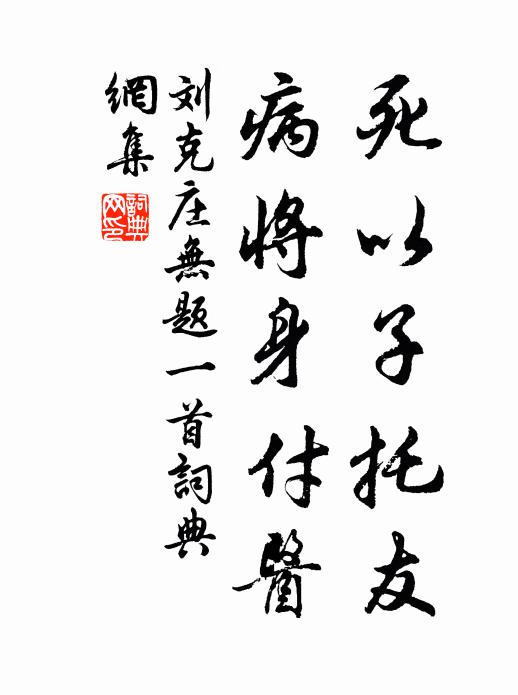 死以子托友
病将身付醫
刘克庄無题一首詞典
網集
詞典网印